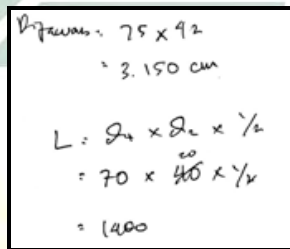 Dijawab : 75 x 42
: 3.150 cm
L : d₁ x d₂ x 1/2
: 70 x 40 x 1/2
20
: 1400